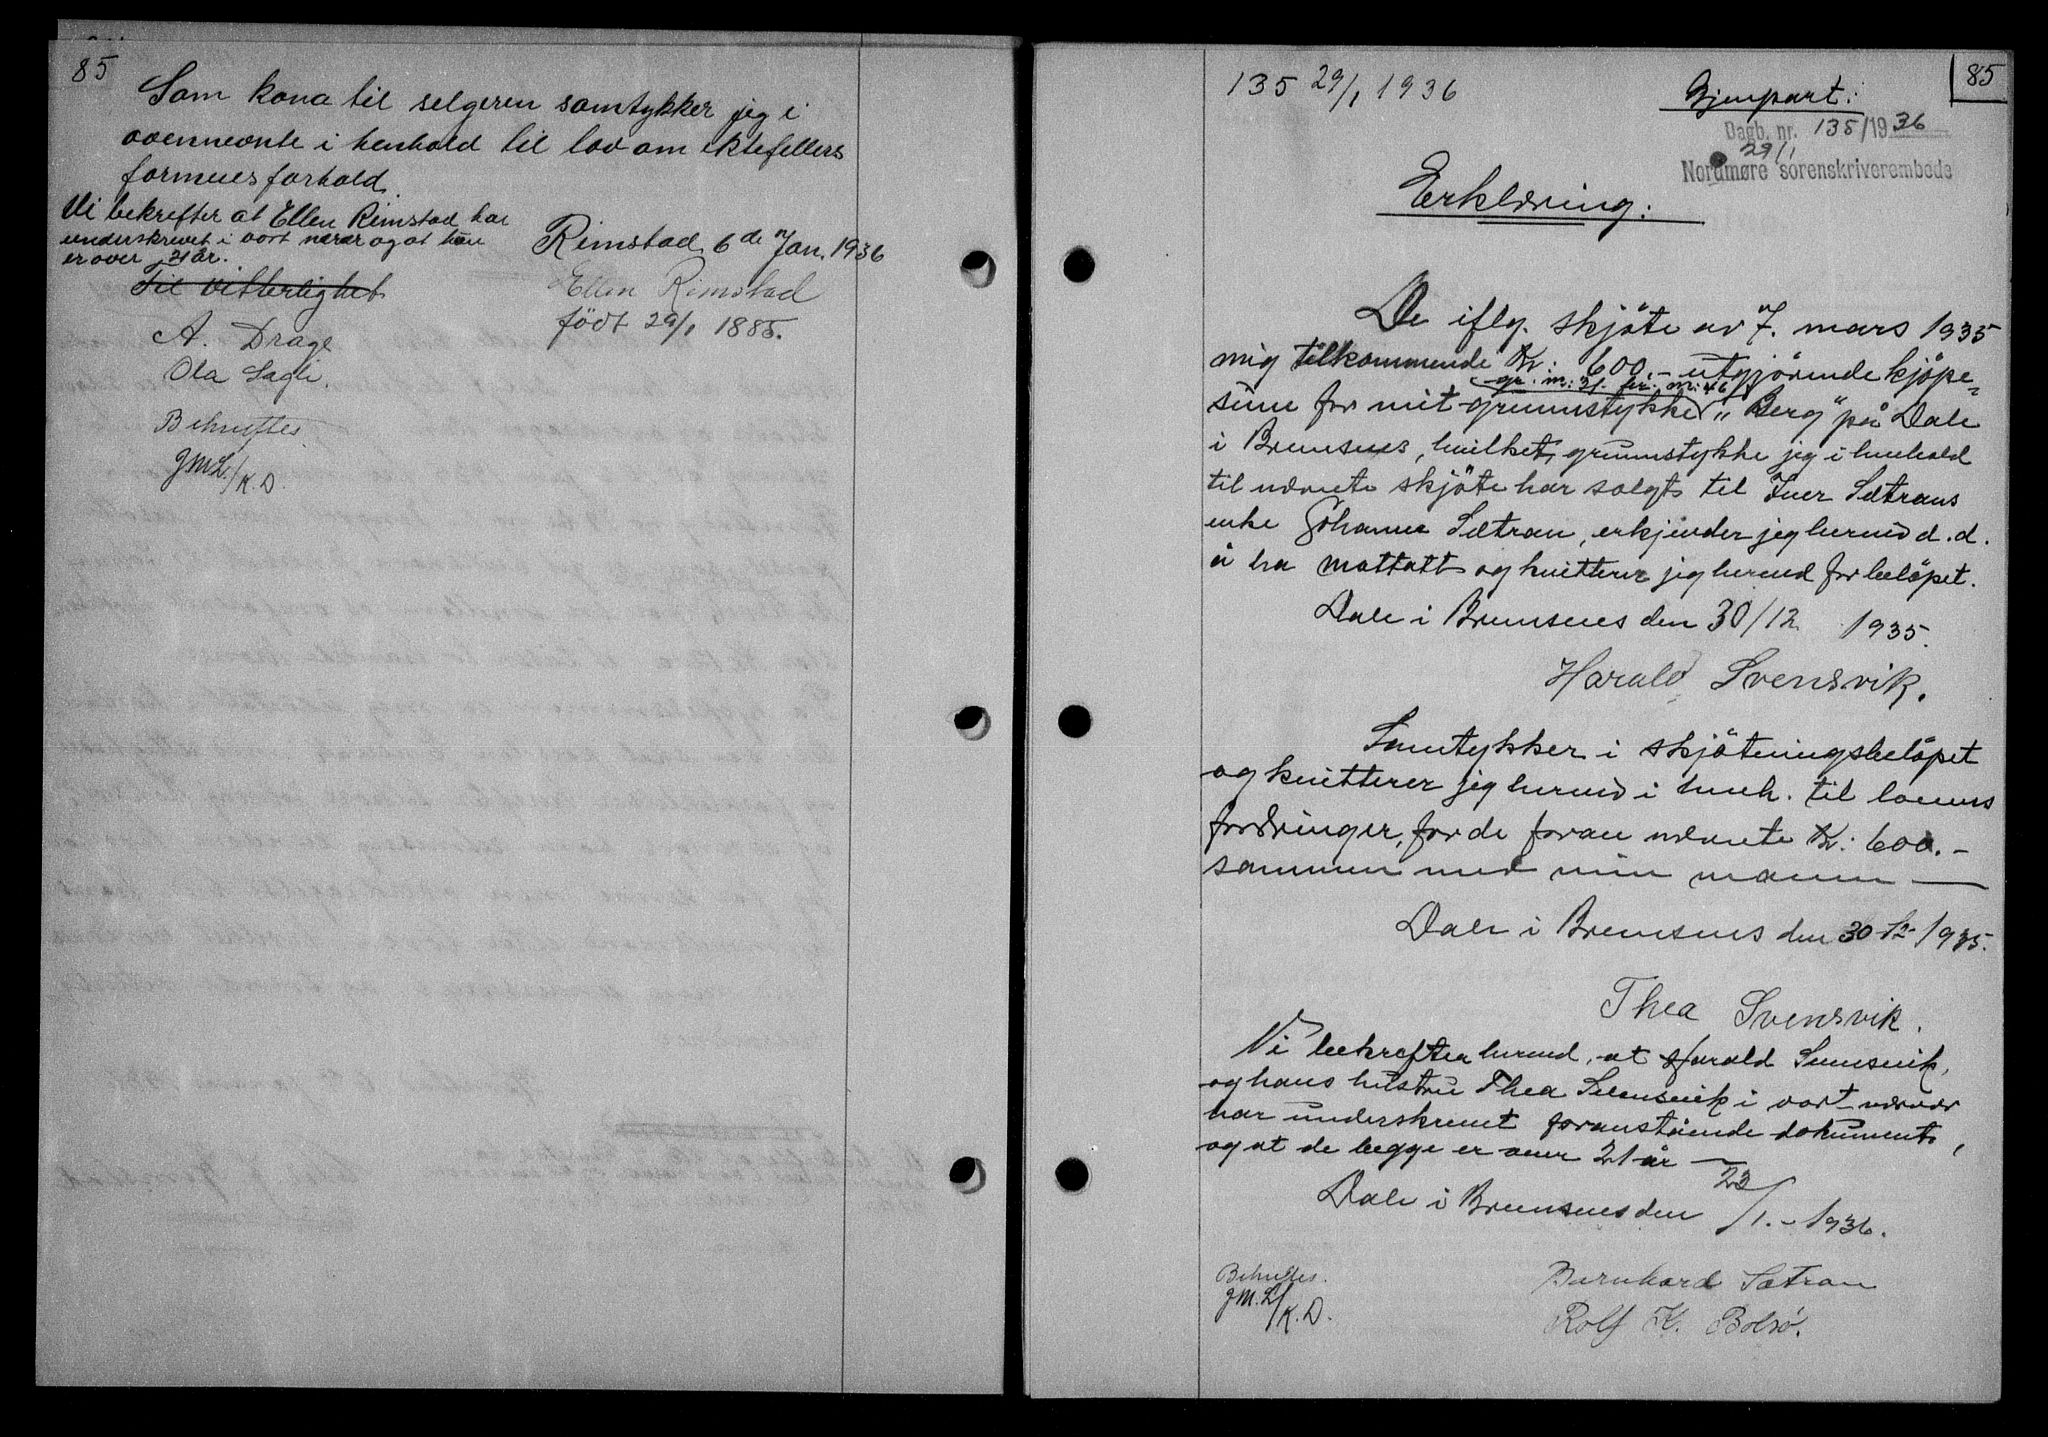 85
Som kona til selgeren samtykker jeg i
ovennevnte i henhold til lov om ektefellers
formuesforhold.
Vi bekrefter at Ellen Rimstad har
underskrevet i vort nærvær og at hun
er over 21 år.
Til vitterlighet
Rimstad 6 de Jan. 1936
Ellen Rimstad
født 29/1 1885.
A. Drage
Ola Sagli.
Bekreftes
JML./K.D.
135 29/1 1936
Gjenpart:
85
Dagb. nr. 135/1936
29/1
Nordmøre sorenskriverembede
Erklæring:
De iflg. skjöte av 7. mars 1935
mig tilkommende Kr: 600.- utgjörende kjöpe-
gr. nr: 31. br. nr: 46
sum for mit grunnstykke "Berg" på Dale
i Bremsnes, hvilket grunnstykke jeg i henhold
til nevnte skjöte har solgt til Iver Sætrans
enke Johanna Sætran, erkjender jeg herved d.d.
å ha mottatt og kvitterer jeg herved for belöpet.
Dale i Bremsnes den 30/12 1935.
Harald Svensvik.
Samtykker i skjötningsbelöpet
og kvitterer jeg herved i henh. til lovens
fordringer, for de foran nevnte Kr: 600.-
sammen med min mann —
Dale i Bremsnes den 30-12-1935.
Thea Svensvik.
Vi bekrefter herved, at Harald Svensvik,
og hans hustru Thea Svensvik i vort nærvær
har underskrevet foranstående dokument,
og at de begge er over 21 år —
Dale i Bremsnes den 23/1.-1936.
Bekreftes.
JM.L/K.D.
Bernhard Sætran
Rolf K. Bolsø.